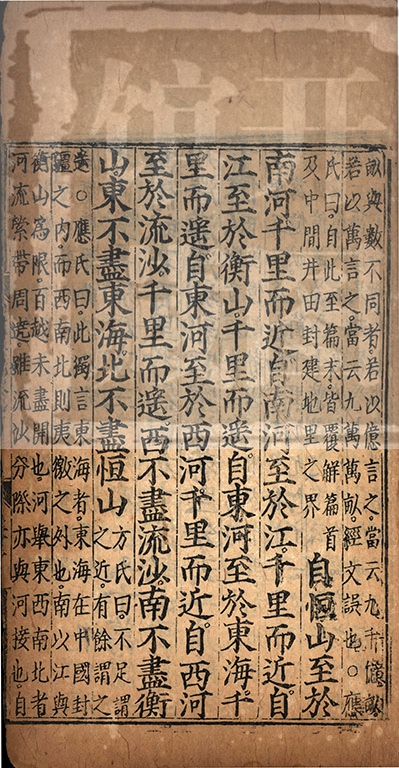 畝與數不同者。若以億言之。當云九十億畝
若以萬言之。當云九萬萬畝。經文誤也○應
氏曰。自此至篇末。皆覆解篇首
及中間井田封建地里之界
自恒山至於
南河。千里而近。自南河至於江。千里而近。自
江至於衡山。千里而遥。自東河至於東海。千
里而遥。自東河至於西河。千里而近。自西河
至於流沙。千里而遥。西不盡流沙。南不盡衡
山。東不盡東海。北不盡恒山
方氏曰。不足謂
之近。有餘謂之
遥○應氏曰。此獨言東海者。東海在中國封
疆之内。而西南北則夷徼之外也。南以江與
衡山爲限。百越未盡開也。河舉東西南北者
河流縈帶周遶。雖流沙分際。亦與河接也。自